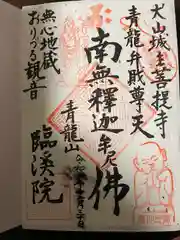 犬山城主菩提寺
青龍弁財尊天
南無釋迦牟尼佛
青龍山
無心地蔵
おりづる観音
臨渓院